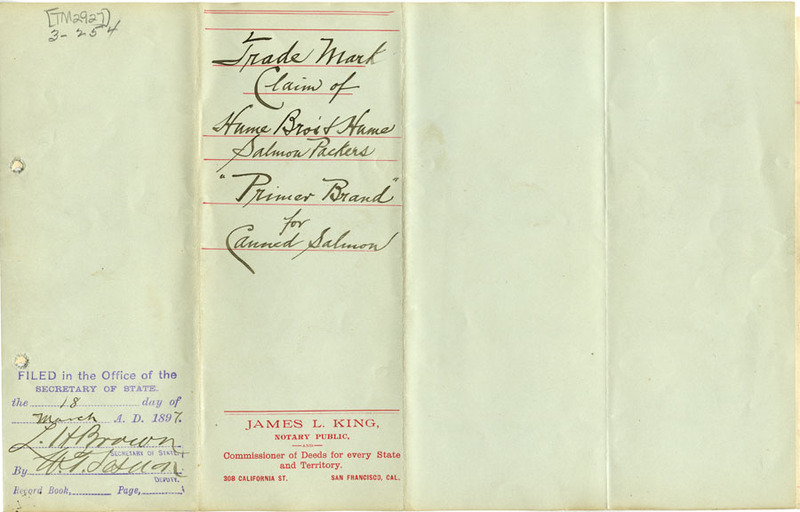 [TM2927]
3-254
Trade Mark
Claim of
Hume Bro's & Hume
Salmon Packers
"Primer Brand"
for
Canned Salmon
FILED in the Office of the
SECRETARY OF STATE.
the 18 day of
March A. D. 1897.
L. H Brown
SECRETARY OF STATE
By
DEPUTY.
Record Book, Page,
JAMES L. KING,
NOTARY PUBLIC,
AND
Commissioner of Deeds for every State
and Territory.
308 CALIFORNIA ST. SAN FRANCISCO, CAL.